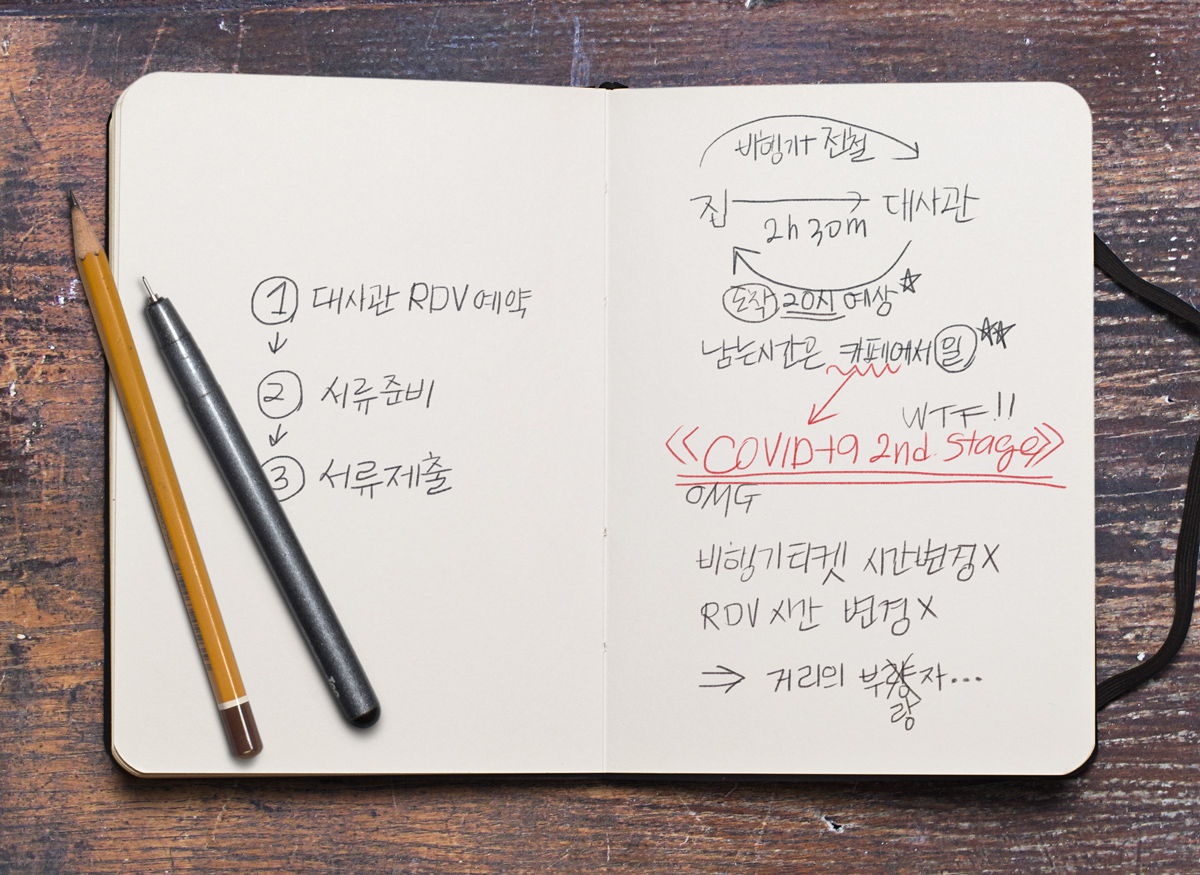 ① 대사관 RDV 예약
↓
② 서류준비
↓
③ 서류제출
비행기+ 전철
집 → 대사관
2h 30m
도착 20시 예상☆
남는시간은 카페에서 일☆☆
WTF!!
《COVID-19 2nd Stage》
OMG
비행기티켓 시간변경X
RDV 시간 변경X
⇒ 거리의 부랑자...